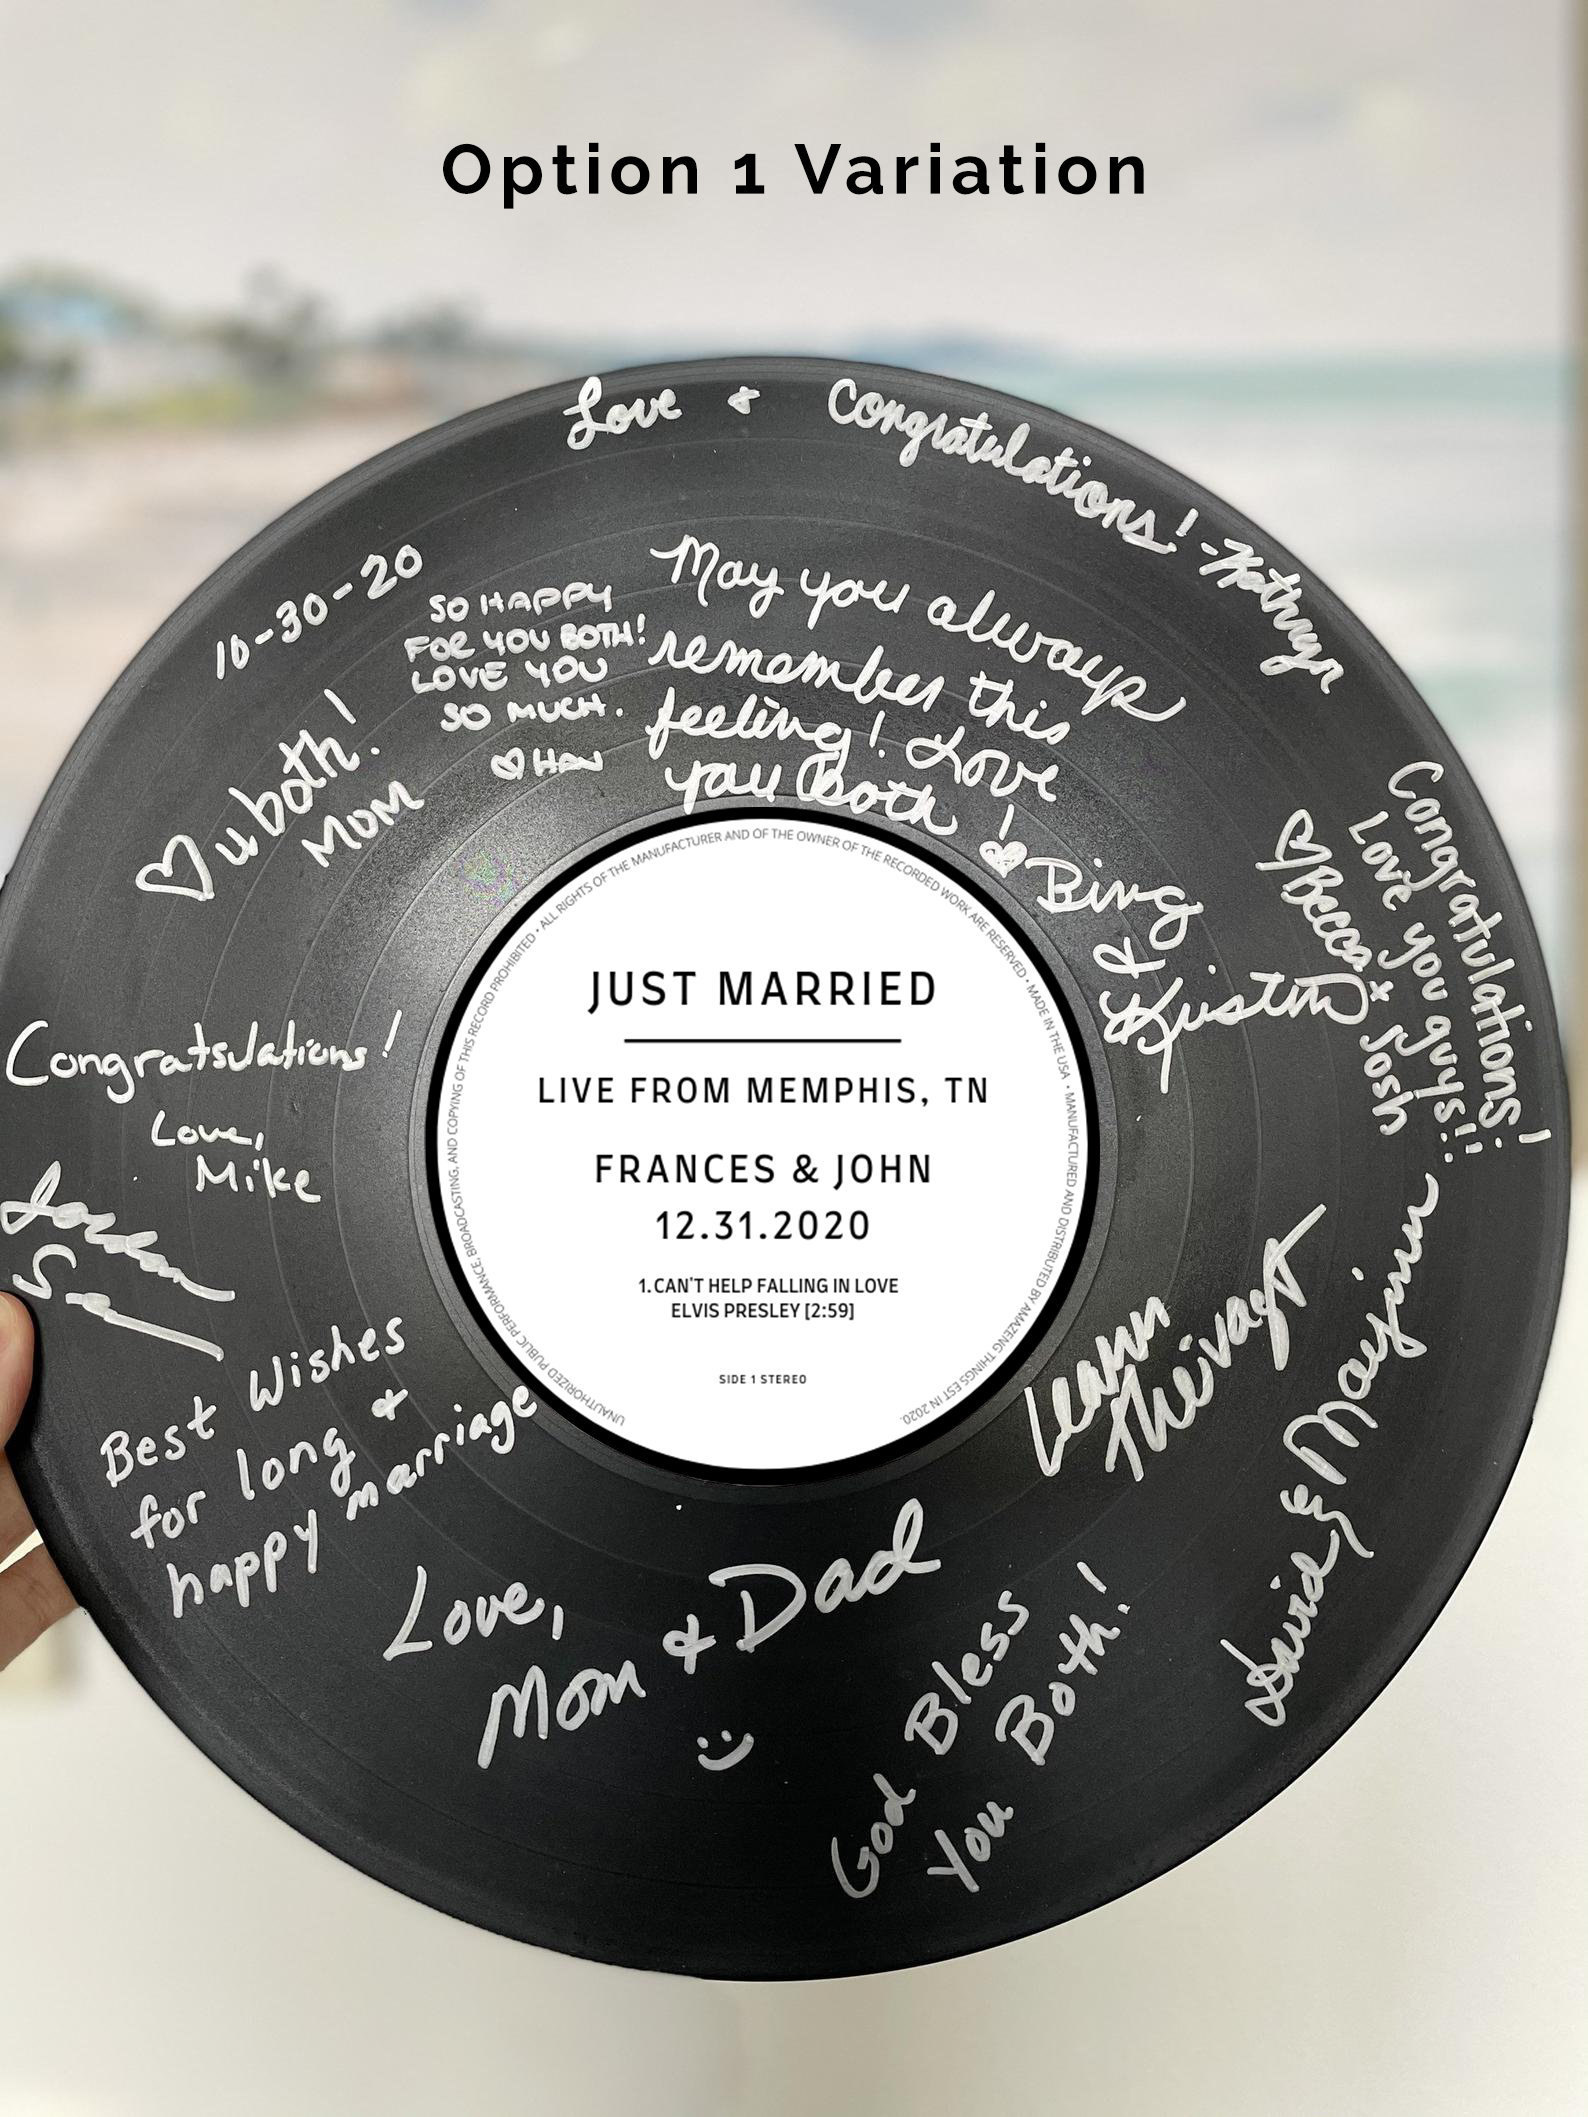 Option 1 Variation
Love & Congratulations! -Kathryn
10-30-20
SO HAPPY
FOR YOU BOTH!
LOVE YOU
SO MUCH.
♡ HAN
May you always
remember this
feeling! Love
you both!
♡ Bing
&
Kristin
♡ u both!
MOM
Congratulations!
Love you guys!!
♡ Becca + Josh
Congratulations!
Love,
Mike
Jordan
Best Wishes
for long &
happy marriage
Love,
Mom & Dad
God Bless
You Both!
Leann
David & Marjine
UNAUTHORIZED PUBLIC PERFORMANCE, BROADCASTING, AND COPYING OF THIS RECORD PROHIBITED • ALL RIGHTS OF THE MANUFACTURER AND OF THE OWNER OF THE RECORDED WORK ARE RESERVED • MADE IN THE USA • MANUFACTURED AND DISTRIBUTED BY AMAZENG THINGS EST IN 2020.
JUST MARRIED
LIVE FROM MEMPHIS, TN
FRANCES & JOHN
12.31.2020
1. CAN'T HELP FALLING IN LOVE
ELVIS PRESLEY [2:59]
SIDE 1 STEREO